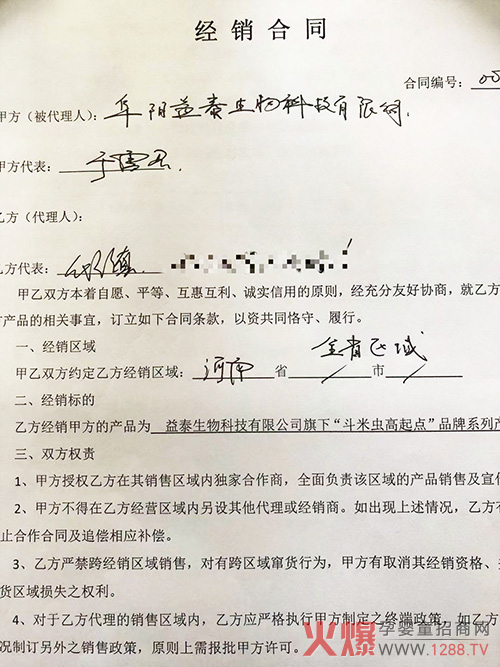 经销合同
合同编号：
甲方（被代理人）：阜阳益泰生物科技有限公司.
甲方代表：
乙方（代理人）：
乙方代表：
甲乙双方本着自愿、平等、互惠互利、诚实信用的原则，经充分友好协商，就乙方
产品的相关事宜，订立如下合同条款，以资共同恪守、履行。
一、经销区域 全省区域
甲乙双方约定乙方经销区域：河南省 / 市 /
二、经销标的
乙方经销甲方的产品为 益泰生物科技有限公司旗下“斗米虫高起点”品牌系列产
三、双方权责
1、甲方授权乙方在其销售区域内独家合作商，全面负责该区域的产品销售及宣传
2、甲方不得在乙方经营区域内另设其他代理或经销商。如出现上述情况，乙方有
止合作合同及追偿相应补偿。
3、乙方严禁跨经销区域销售，对有跨区域窜货行为，甲方有取消其经销资格、
货区域损失之权利。
4、对于乙方代理的销售区域内，乙方应严格执行甲方制定之终端政策，如乙方
况制订另外之销售政策，原则上需报批甲方许可。
火爆孕婴童招商网
www.1288.TV